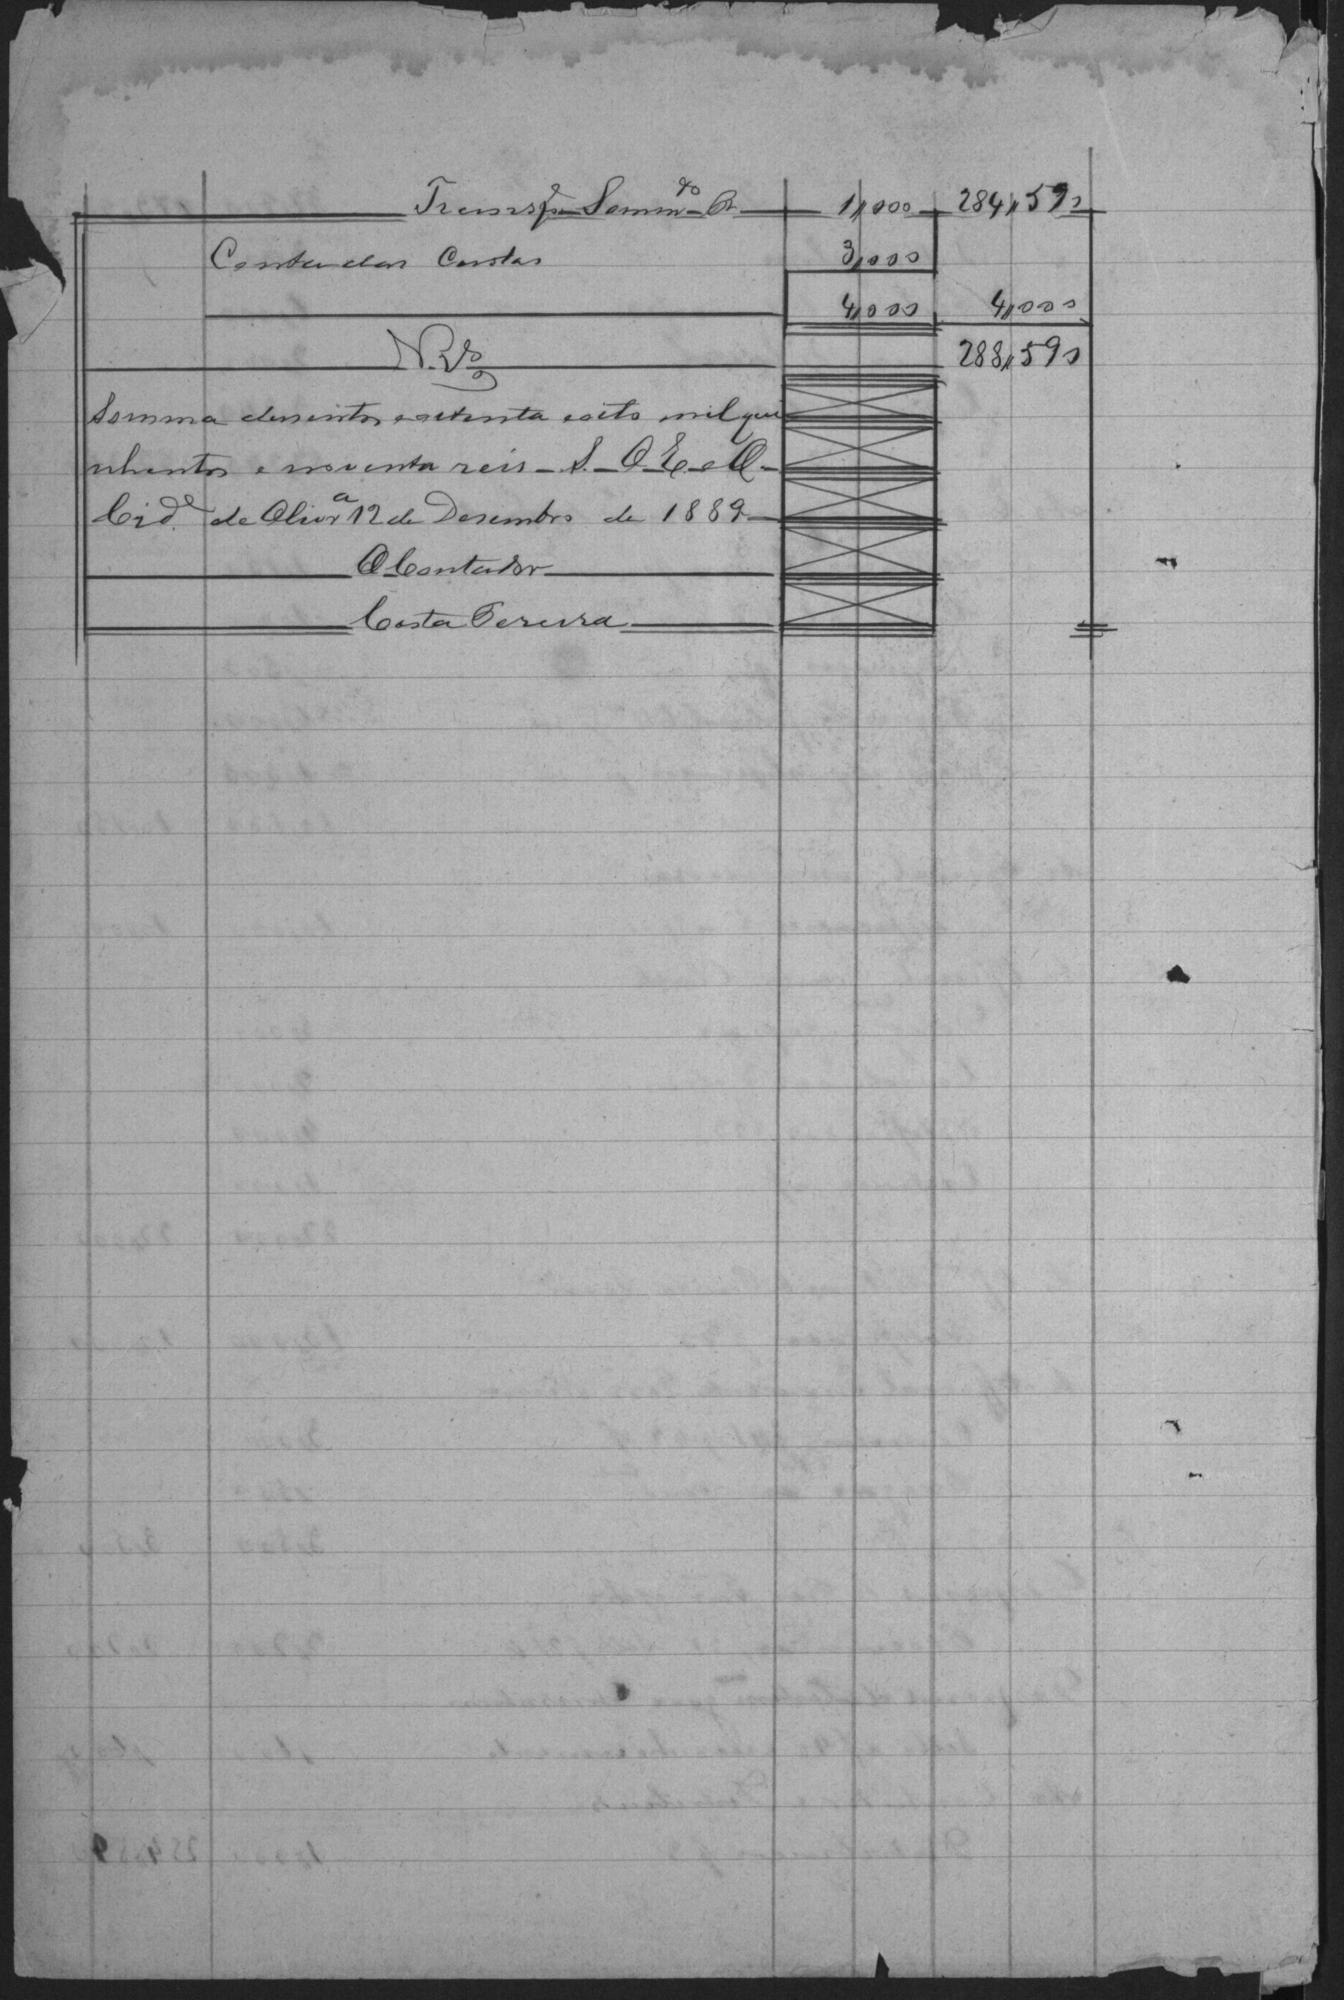 Transp.e Somm.do R 1,,000 284,,590
Conta das Custas 3,,000
4,,000 4,,000
N. Rs 288,,590
Somma dusentos e oitenta e oito mil qui
nhentos e noventa reis - S. O. E. e O. -
Cid.e de Olivr.a 12 de Desembro de 1889
O Contador
Costa Pereira